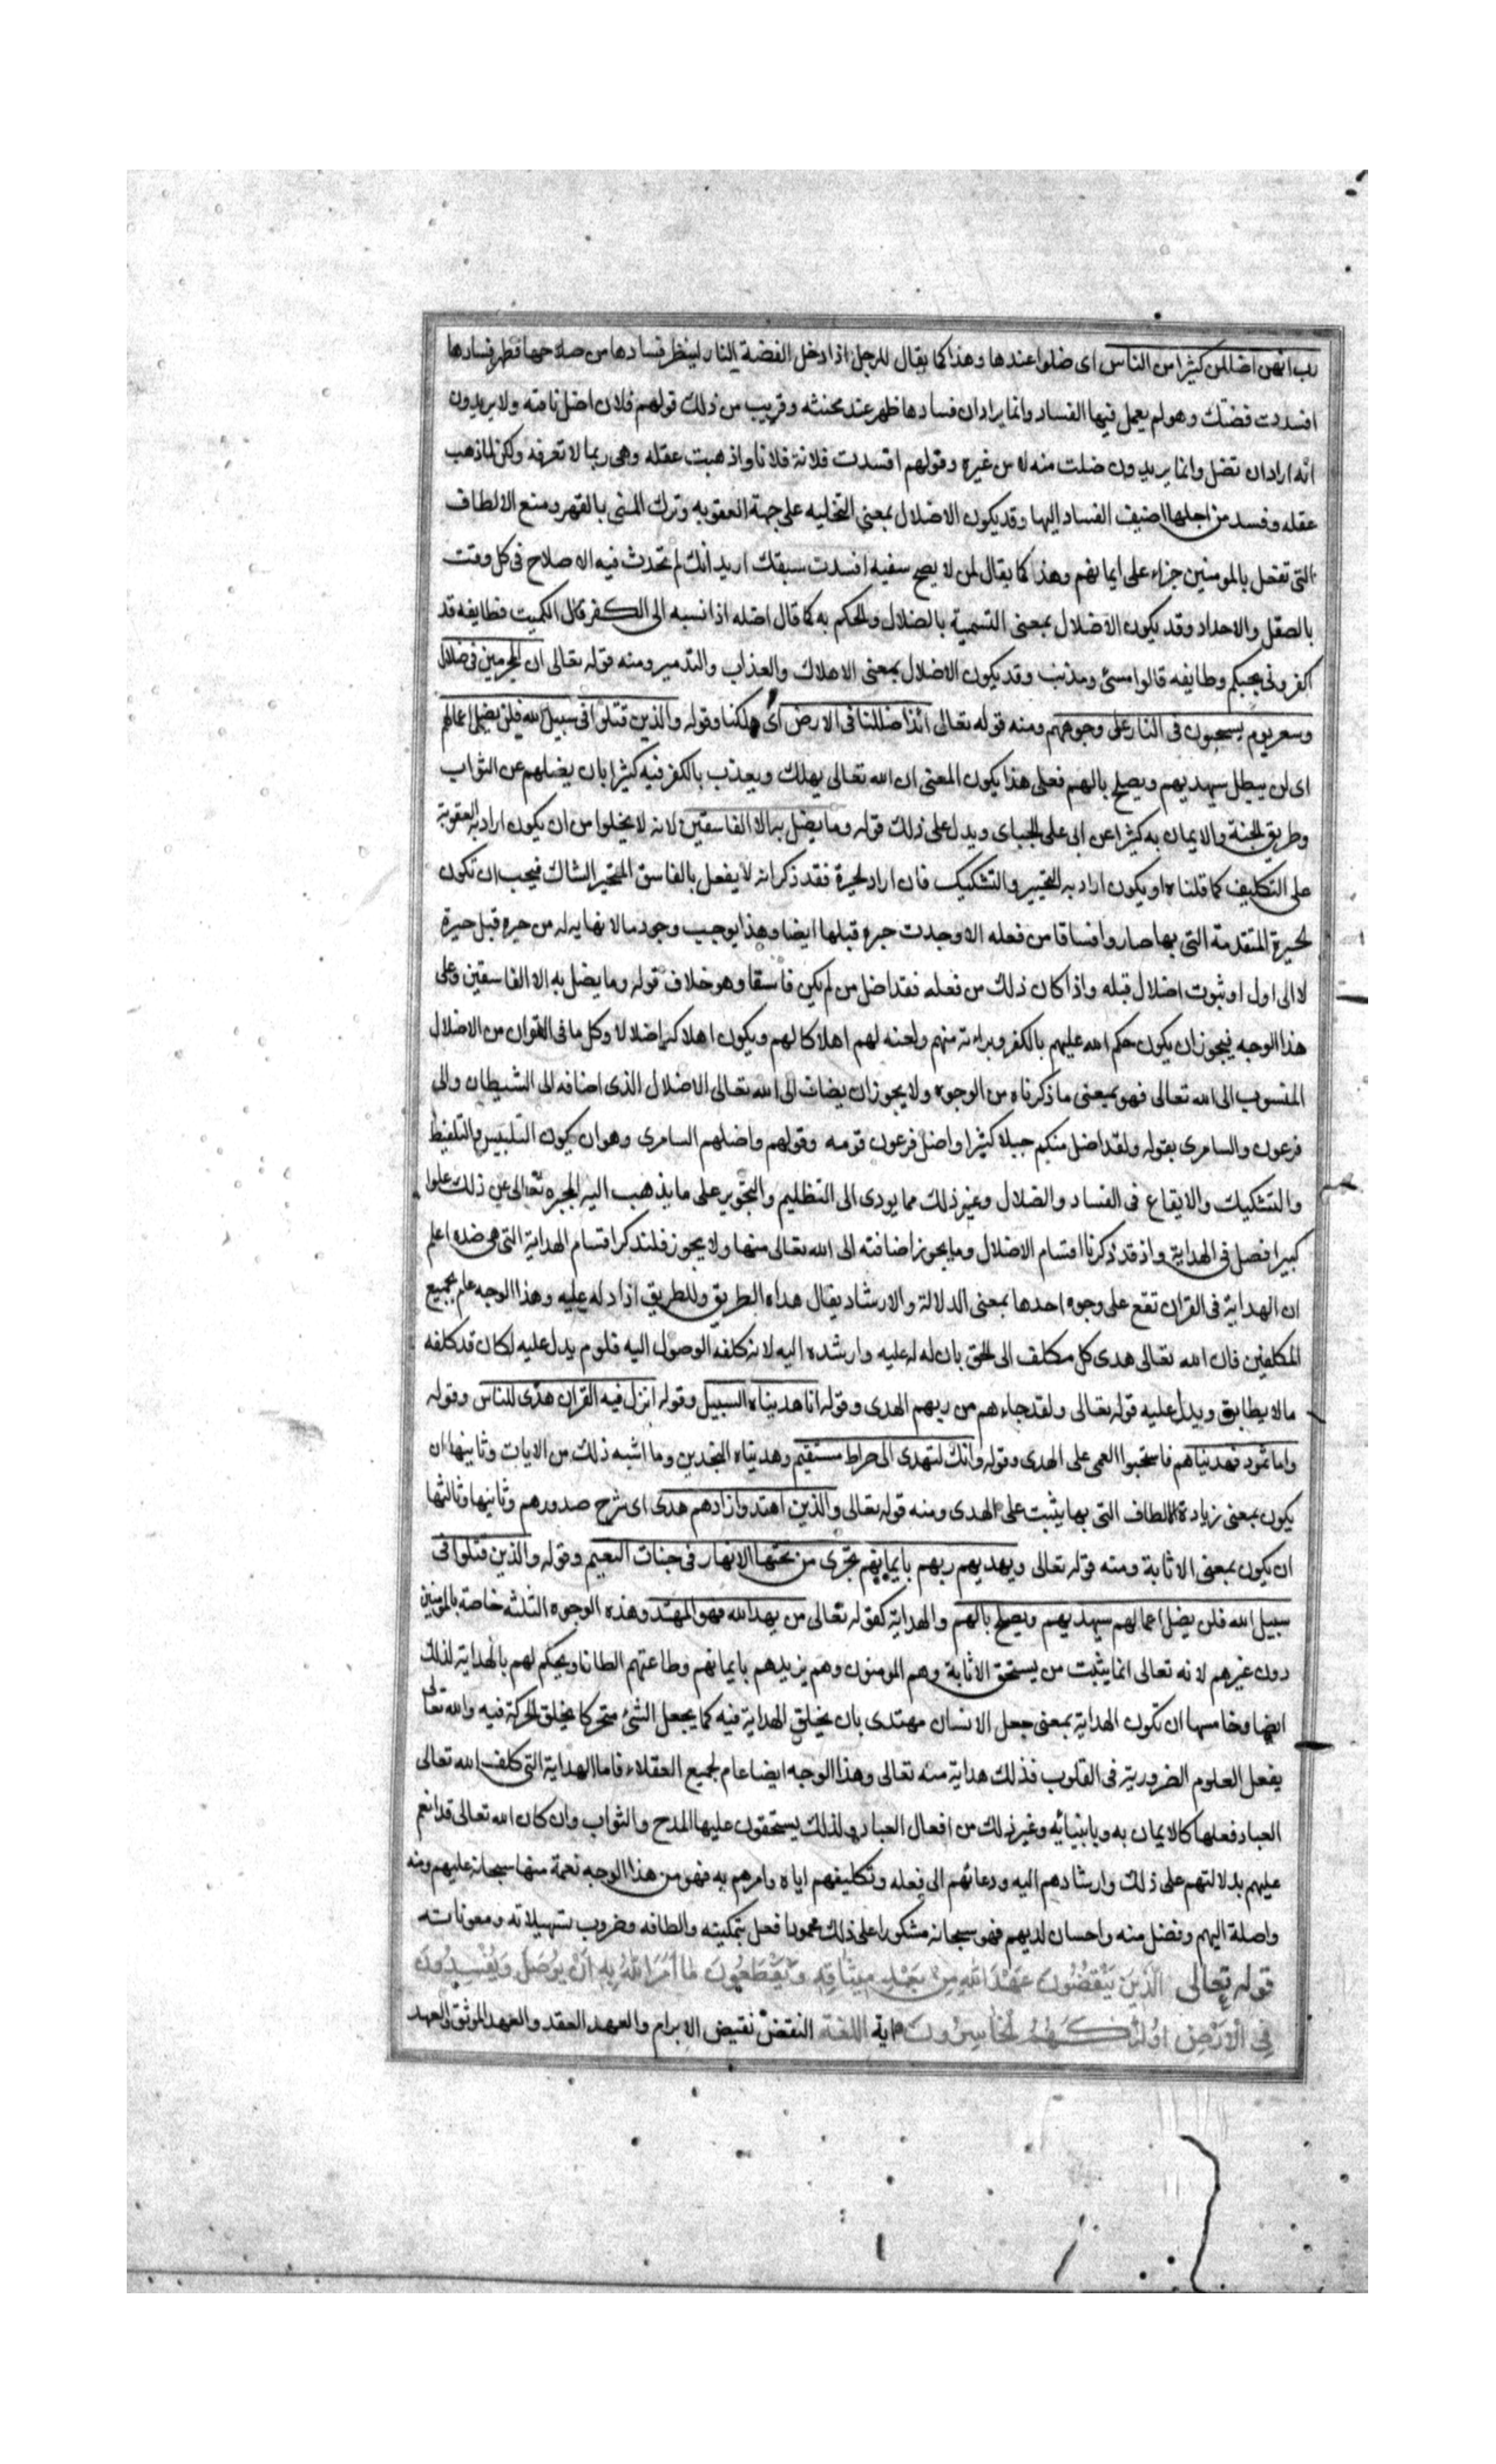 رب انهن اضللن كثيرا من الناس اى ضلوا عندها وهذا كما يقال للرجل اذا ادخل الفضة النار لينظر فسادها من صلاحها فظهر فسادها
افسدت فضتك وهو لم يعمل فيها الفساد وانما يراد ان فسادها ظهر عند محنته وقريب من ذلك قولهم فلان اضل ناقته ولا يريدون
انه اراد ان تضل وانما يريدون ضلت منه لا من غيره وقولهم افسدت فلانة فلانا واذهبت عقله وهى ربما لا تعرفه ولكن لما ذهب
عقله وفسد من اجلها اضيف الفساد اليها وقد يكون الاضلال بمعنى التخليه على جهة العقوبه وترك المنع بالقهر ومنع الالطاف
التى تفعل بالمومنين جزاء على ايمانهم وهذا كما يقال لمن لا يصلح سفيه افسدت سيفك اريد انك لم تحدث فيه الاصلاح فى كل وقت
بالصقل والاحداد وقد يكون الاضلال بمعنى التسمية بالضلال والحكم به كما قال اضله اذا نسبه الى الكفر قال الكميت فطايفه قد
اكفرونى بحبكم وطايفه قالوا مسئ ومذنب وقد يكون الاضلال بمعنى الاهلاك والعذاب والتدمير ومنه قوله تعالى ان المجرمين فى ضلال
وسعر يوم يسحبون فى النار على وجوههم ومنه قوله تعالى ائذا ضللنا فى الارض اى هلكنا وقوله والذين قتلوا فى سبيل الله فلن يضل اعمالهم
اى لن يبطل سيهديهم ويصلح بالهم فعلى هذا يكون المعنى ان الله تعالى يهلك ويعذب بالكفر فيه كثيرا بان يضلهم عن الثواب
وطريق الجنة والايمان به كثيرا عن ابى على الجباى ويدل على ذلك قوله وما يضل به الا الفاسقين لانه لا يخلوا من ان يكون اراد به العقوبة
على التكليف كما قلناه او يكون اراد به التحيير والتشكيك فان اراد الحيرة فقد ذكر انه لا يفعل بالفاسق المتحير الشاك فيجب ان تكون
الحيرة المتقدمة التى بها صاروا فساقا من فعله الا وجدت حيره قبلها ايضا وهذا يوجب وجود ما لا نهايه له من حيره قبل حيرة
لا الى اول او ثبوت اضلال قبله واذا كان ذلك من فعله فقد اضل من لم يكن فاسقا وهو خلاف قوله وما يضل به الا الفاسقين وعلى
هذا الوجه فيجوز ان يكون حكم الله عليهم بالكفر وبراءته منهم ولعنه لهم اهلاكا لهم ويكون اهلاكه اضلالا وكل ما فى القران من الاضلال
المنسوب الى الله تعالى فهو بمعنى ما ذكرناه من الوجوه ولا يجوز ان يضاف الى الله تعالى الاضلال الذى اضافه الى الشيطان والى
فرعون والسامرى بقوله ولقد اضل منكم جبلا كثيرا واضل فرعون قومه وقولهم واضلهم السامرى وهو ان يكون التلبيس والتغليط
والتشكيك والايقاع فى الفساد والضلال وغير ذلك مما يودى الى التظليم والتجوير على ما يذهب اليه المجبره تعالى عن ذلك علوا
كبيرا فصل فى الهداية واذ قد ذكرنا اقسام الاضلال وما يجوز اضافته الى الله تعالى منها ولا يجوز فلنذكر اقسام الهداية التى هى ضده اعلم
ان الهداية فى القران تقع على وجوه احدها بمعنى الدلالة والارشاد يقال هداه الطريق وللطريق اذا دله عليه وهذا الوجه عام بجميع
المكلفين فان الله تعالى هدى كل مكلف الى الحق بان له له عليه وارشده اليه لانه كلفه الوصول اليه فلو لم يدل عليه لكان قد كلفه
ما لا يطابق ويدل عليه قوله تعالى ولقد جاءهم من ربهم الهدى وقوله انا هديناه السبيل وقوله انزل فيه القران هدى للناس وقوله
واما ثمود فهديناهم فاستحبوا العمى على الهدى وقوله وانك لتهدى الى صراط مستقيم وهديناه النجدين وما اشبه ذلك من الايات وثانيها ان
يكون بمعنى زيادة الالطاف التى بها يثبت على الهدى ومنه قوله تعالى والذين اهتدوا زادهم هدى اى شرح صدورهم وثانيها وثالثها
ان يكون بمعنى الاثابة ومنه قوله تعالى ويهديهم ربهم بايمانهم تجرى من تحتها الانهار فى جنات النعيم وقوله والذين قتلوا فى
سبيل الله فلن يضل اعمالهم سيهديهم ويصلح بالهم والهداية كقوله تعالى من يهد الله فهو المهتد وهذه الوجوه الثلثه خاصة بالمومنين
دون غيرهم لانه تعالى انما يثبت من يستحق الاثابة وهم المومنون وهم يزيدهم بايمانهم وطاعتهم الطافا ويحكم لهم بالهداية لذلك
ايضا وخامسها ان تكون الهداية بمعنى جعل الانسان مهتدى بان يخلق الهداية فيه كما يجعل الشئ متحركا بخلق الحركة فيه والله تعالى
يفعل العلوم الضرورية فى القلوب فذلك هداية منه تعالى وهذا الوجه ايضا عام لجميع العقلاء فاما الهداية التى كلف الله تعالى
العباد فعلها كالايمان به وبابنيائه وغير ذلك من افعال العباد ولذلك يستحقون عليها المدح والثواب وان كان الله تعالى قد انعم
عليهم بدلالتهم على ذلك وارشادهم اليه ودعائهم الى فعله وتكليفهم اياه وامرهم به فهو من هذا الوجه نعمة منها سبحانه عليهم ومنه
واصلة اليهم وفضل منه واحسان لديهم فهو سبحانه مشكورا على ذلك محمودا فعل بتمكينه والطافه وضروب تسهيلاته ومعوناته
قوله تعالى الَّذِينَ يَنْقُضُونَ عَهْدَ اللَّهِ مِنْ بَعْدِ مِيثَاقِهِ وَيَقْطَعُونَ مَا أَمَرَ اللَّهُ بِهِ أَنْ يُوصَلَ وَيُفْسِدُونَ
فِي الْأَرْضِ اوُلئكَ هُمُ الْخَاسِرُونَ اية اللغة النقض نقيض الابرام والعهد العقد والعهد الموثق والعهد